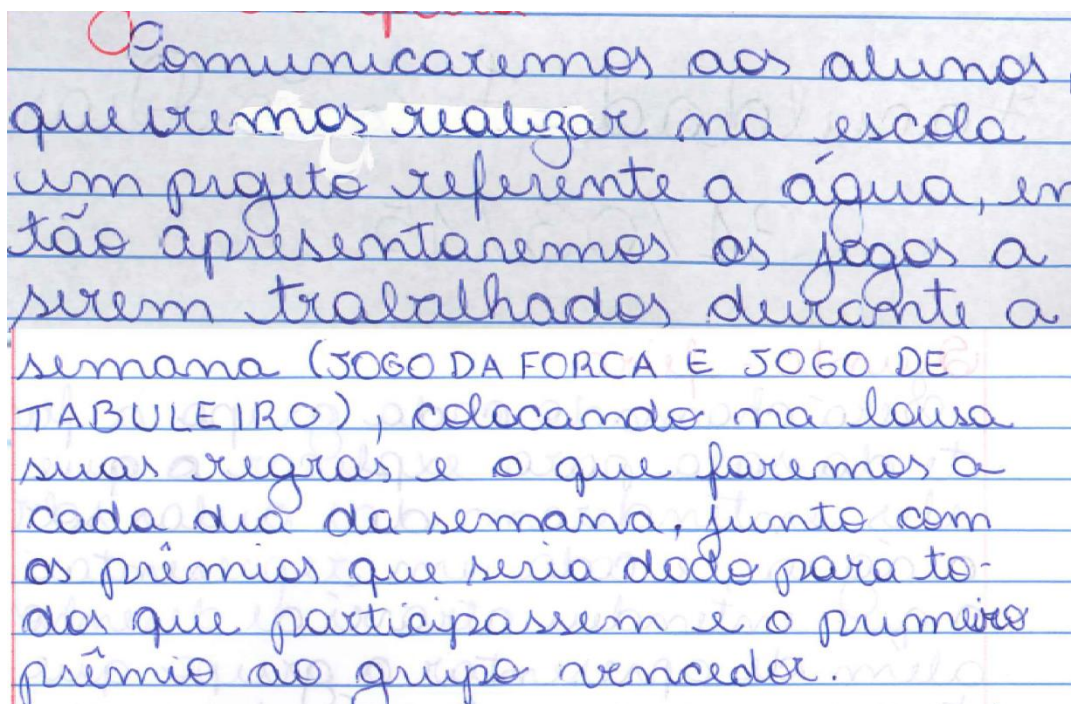 Comunicaremos aos alunos,
queiremos realizar na escola
um projeto referente a água, en
tão apresentaremos os jogos a
serem trabalhados durante a
semana (JOGO DA FORCA E JOGO DE
TABULEIRO), colocando na lousa
suas regras e o que faremos a
cada dia da semana, junto com
os prêmios que seria dado para to-
dos que participassem e o primeiro
prêmio ao grupo vencedor.